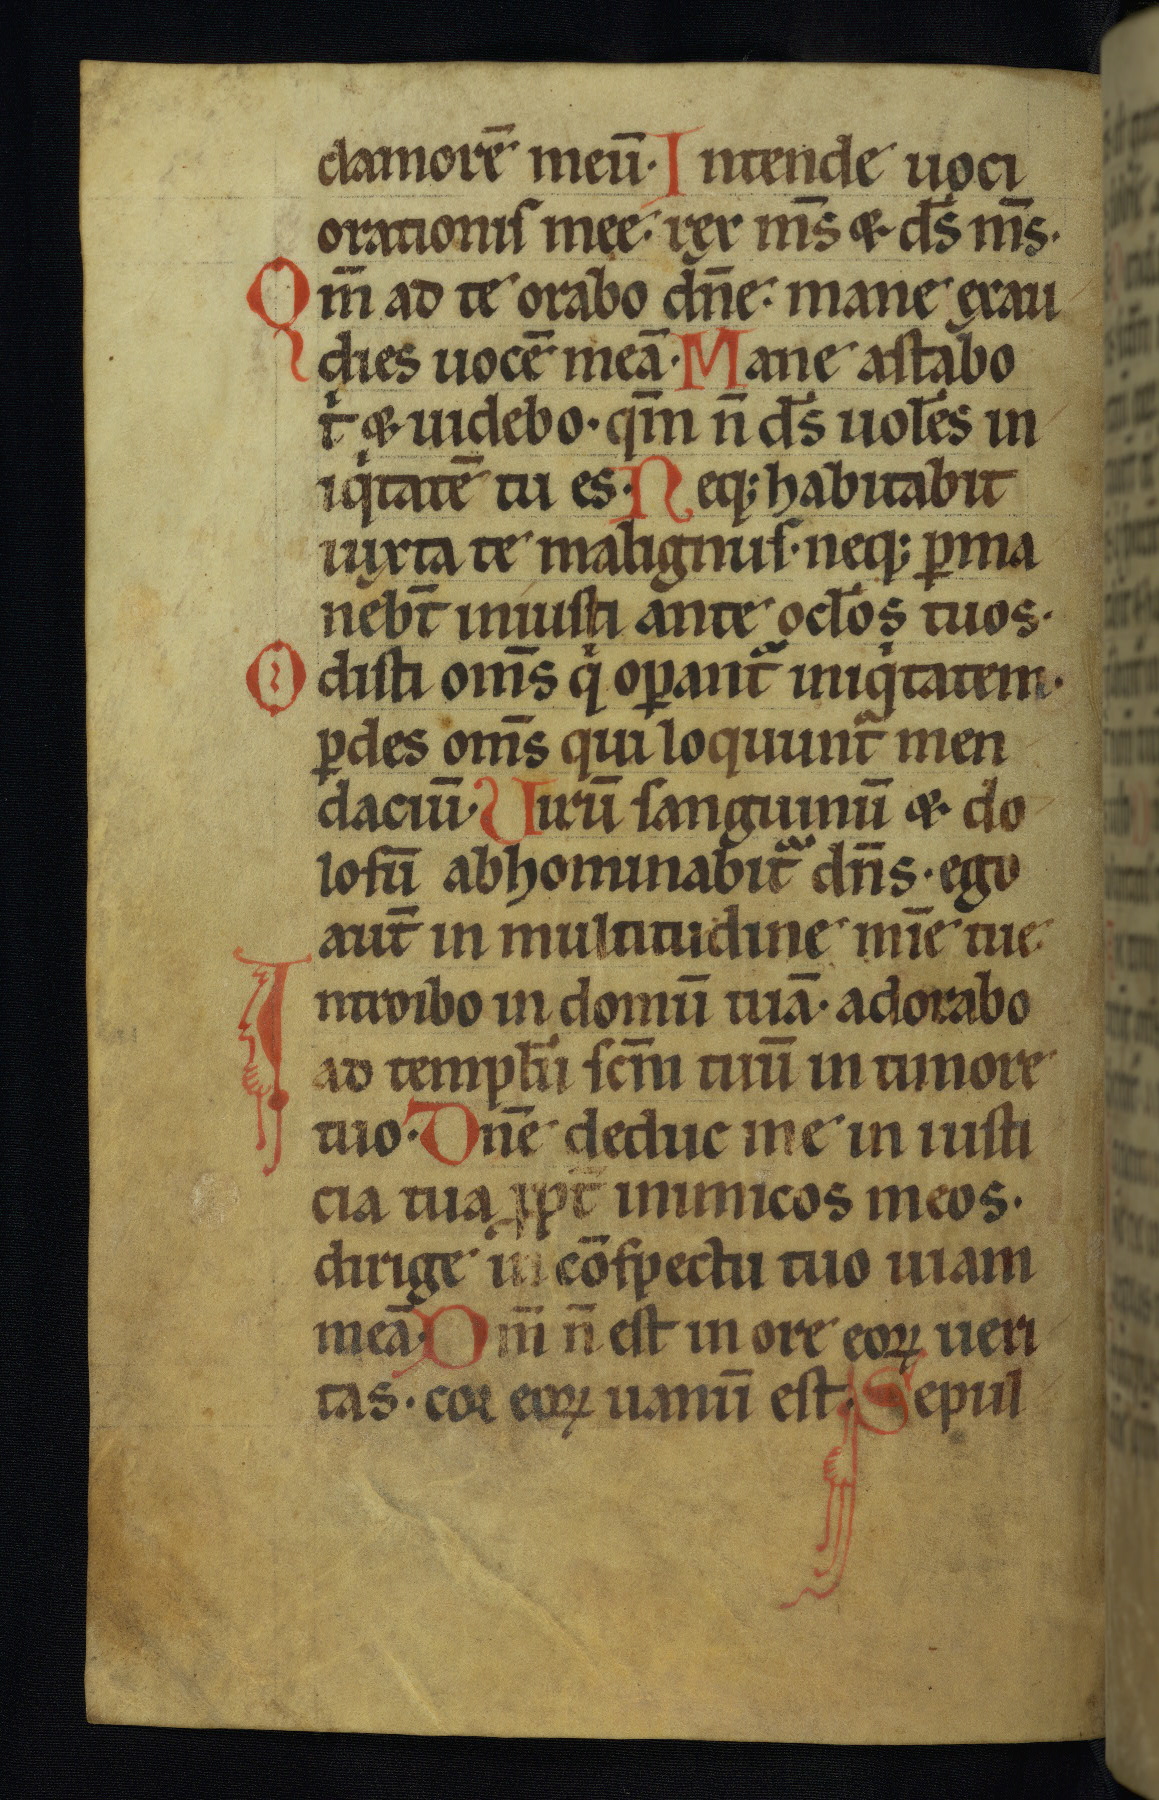 clamorē meū· Intende uoci
orationiſ mee· rex m̄s & d̄s m̄s·
Qm̄ ad te orabo dn̄e· mane exau
dies uocē meā· Mane aſtabo
t̄ & uidebo· qm̄ n̄ d̄s uol̄es in
iqͥtatē tu es· Neq; habitabit
iuxta te malignuſ· neq; ꝑma
nebt̄ iniuſti ante ocl̄os tuos·
Odiſti om̄s qͥ oꝑant᷑ iniqͥtatem·
ꝑdes om̄s qui loquunt᷑ men
daciū· Uirū ſanguinū & do
loſū abhominabit᷑ dn̄s· ego
aut̄ in multitudine mīe tue
Introibo in domū tuā· adorabo
ad templ̄u ſcm̄ tuū in timore
tuo· Dn̄e deduc me in iuſti
cia tua ꝓpt̄ inimicos meos·
dirige in cōſpectu tuo uiam
meā· Qm̄ n̄ eſt in ore eoꝝ ueri
tas· cor eoꝝ uanū eſt· Sepul